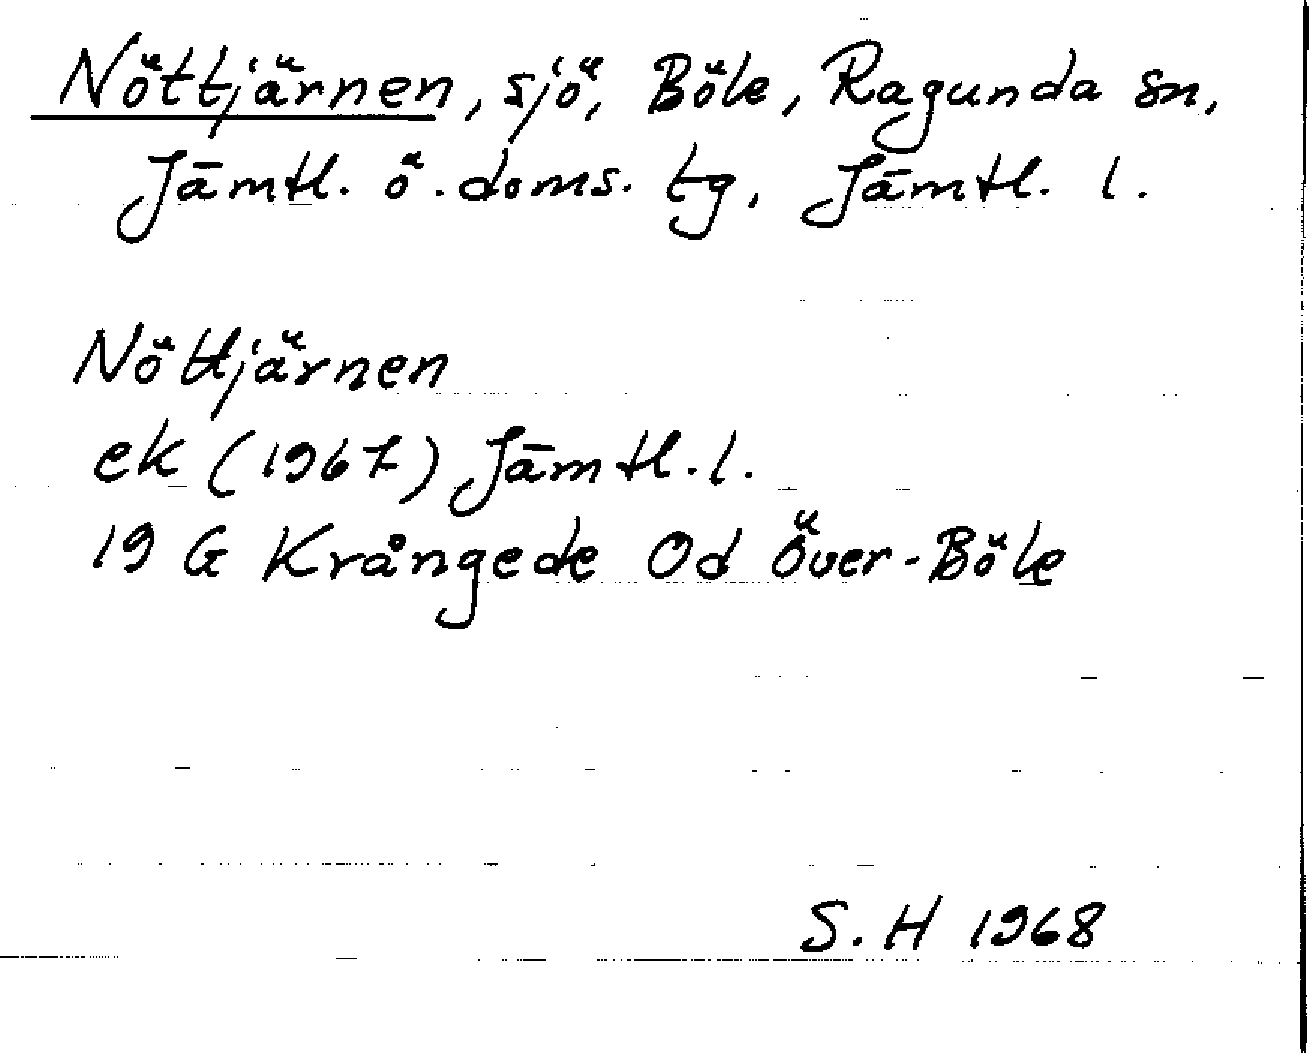 Nöttjärnen, sjö, Böle, Ragunda sn,
Jämtl. ö. doms. tg, Jämtl. l.
Nöttjärnen
ek (1967) Jämtl. l.
19 G Krångede Od Över-Böle
S. H 1968